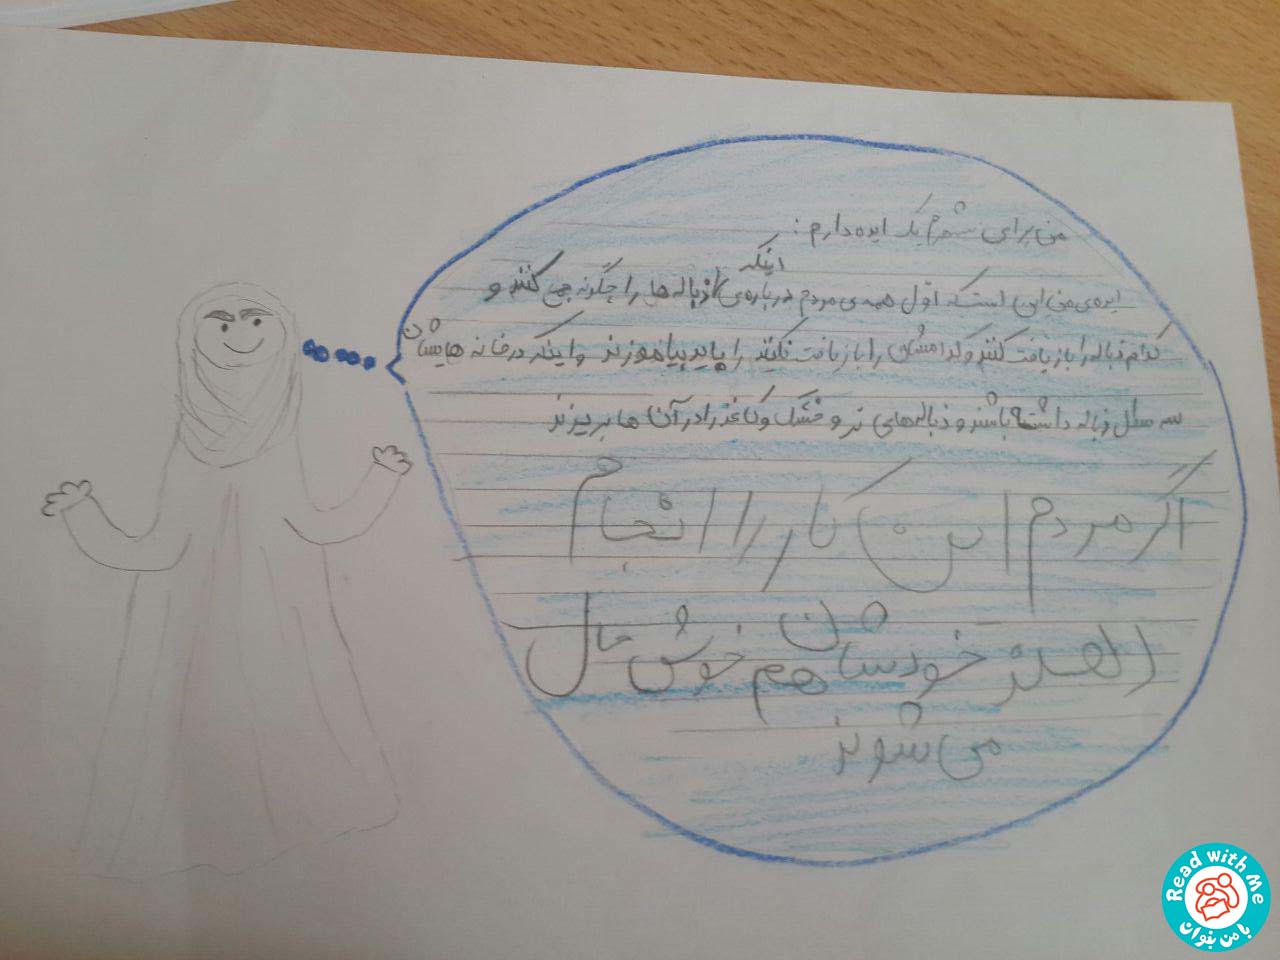 من برای شهرم یک ایده دارم :
اینکه
ایده‌ی من این است که اوّل همه‌ی مردم درباره‌ی زباله ها را چگونه جمع کنند و
کدام زباله را بازیافت کنند و کدامشان را بازیافت نکنند را باید بیاموزند و اینکه در خانه هایشان
سه سطل زباله داشته باشند و زباله‌های تر و خشک و کاغذ را در آن ها بریزند
اگر مردم این کار را انجام
دهند خودشان هم خوش حال
می شوند
Read with Me
با من بخوان